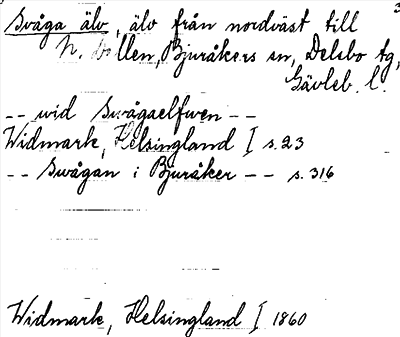 Svåga älv, älv från nordväst till
N. Dellen, Bjuråkers sn, Delsbo tg,
Gävleb. l.
-- wid Swågaelfwen --
Widmark, Helsingland I s. 23
-- Swågan i Bjuråker -- s. 316
Widmark, Helsingland I 1860